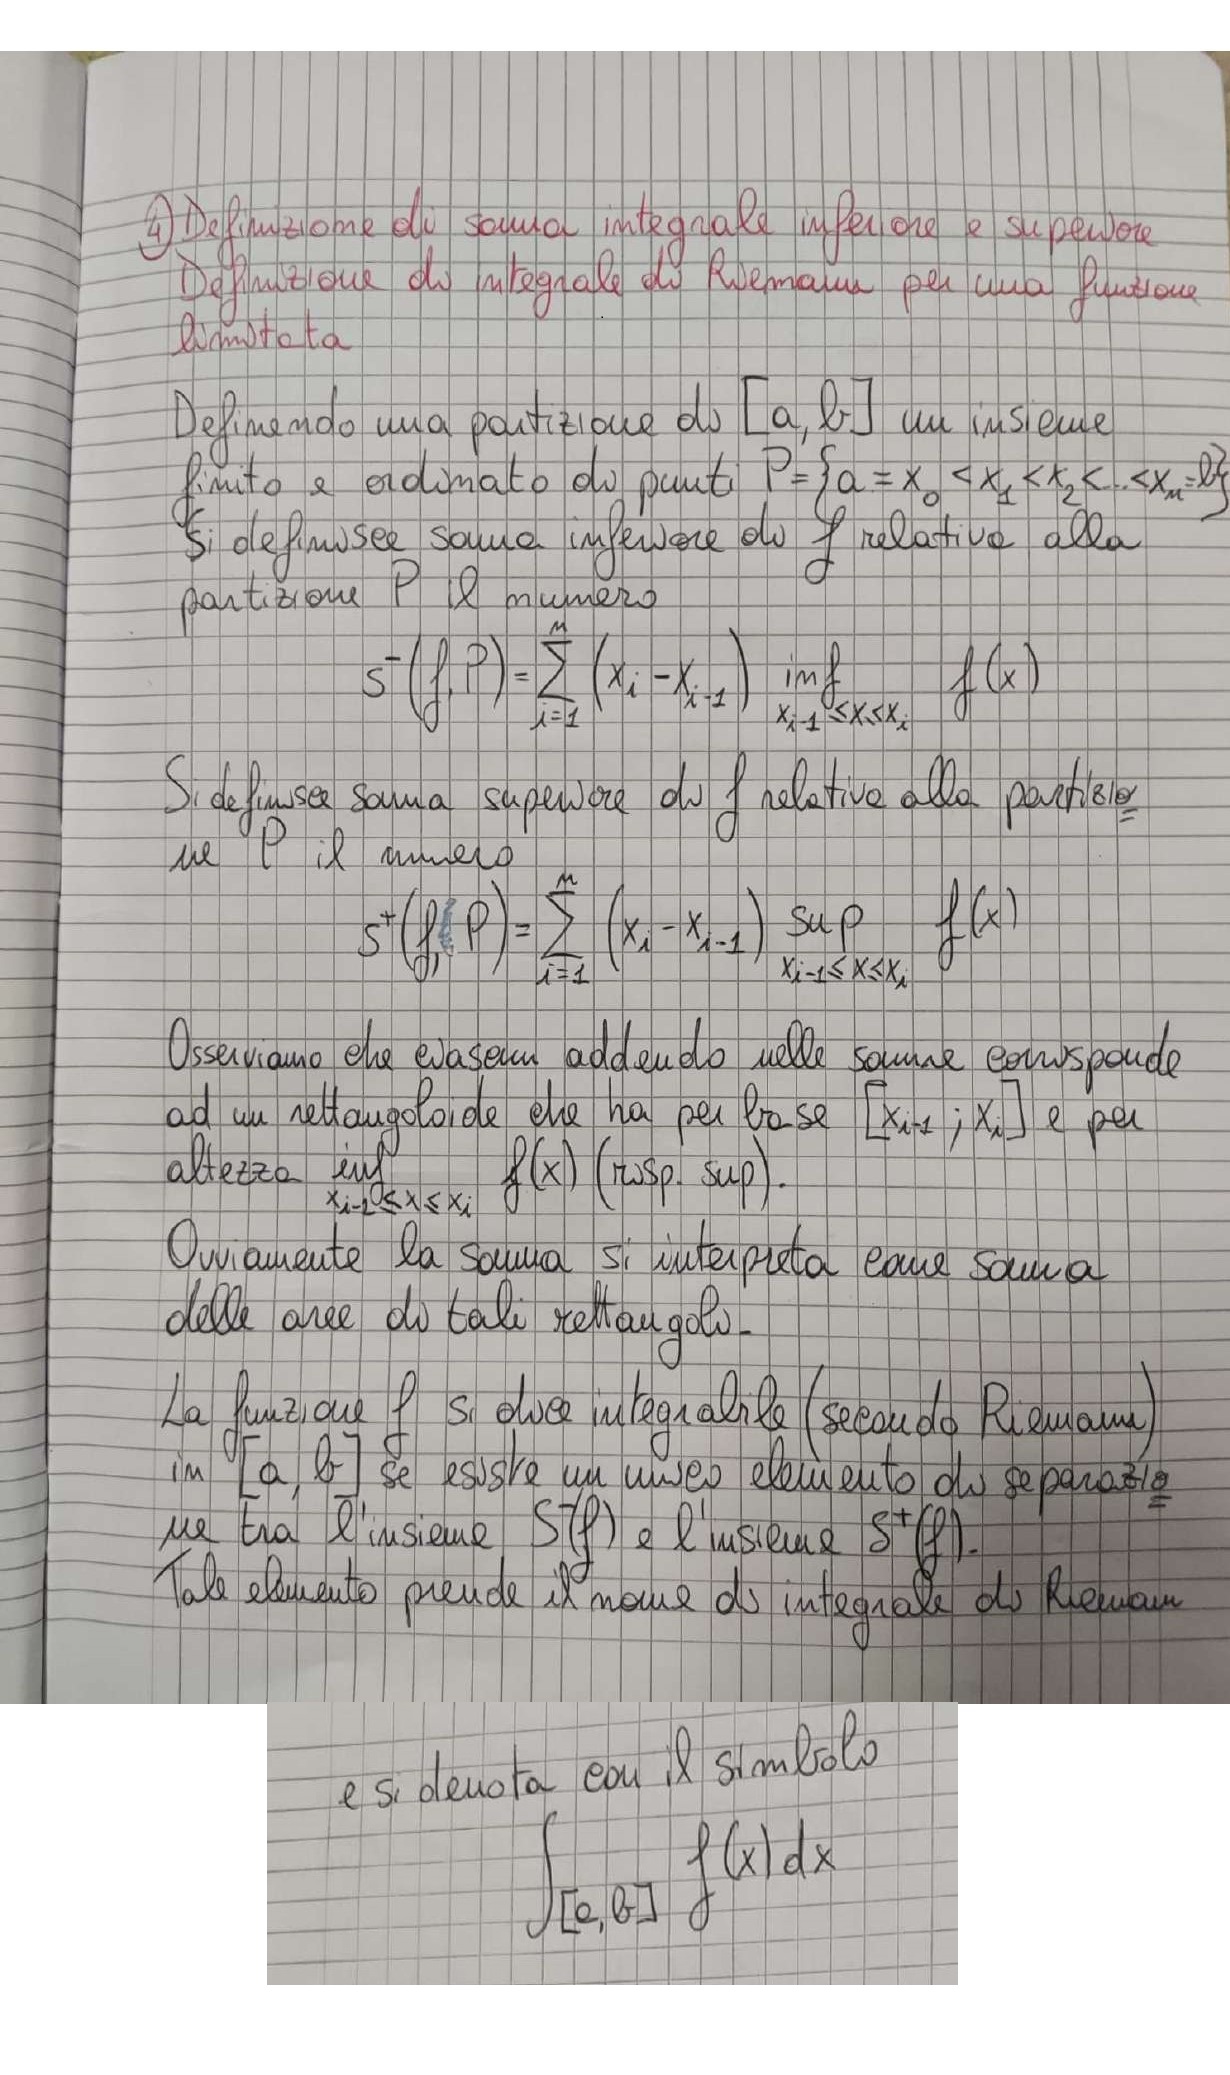 4) Definizione di somma integrale inferiore e superiore
Definizione di integrale di Riemann per una funzione
limitata
Definendo una partizione di [a, b] un insieme
finito e ordinato di punti P = {a = x₀ < x₁ < x₂ < ... < xₙ = b}
Si definisce somma inferiore di f relativa alla
partizione P il numero
s⁻(f, P) = ∑ᵢ₌₁ⁿ (xᵢ - xᵢ₋₁) inf f(x)
xᵢ₋₁ ≤ x ≤ xᵢ
Si definisce somma superiore di f relativa alla partizio
ne P il numero
s⁺(f, P) = ∑ᵢ₌₁ⁿ (xᵢ - xᵢ₋₁) sup f(x)
xᵢ₋₁ ≤ x ≤ xᵢ
Osserviamo che ciascun addendo nelle somme corrisponde
ad un rettangoloide che ha per base [xᵢ₋₁ ; xᵢ] e per
altezza inf f(x) (risp. sup).
xᵢ₋₁ ≤ x ≤ xᵢ
Ovviamente la somma si interpreta come somma
delle aree di tali rettangoli.
La funzione f si dice integrabile (secondo Riemann)
in [a, b] se esiste un unico elemento di separazio
ne tra l'insieme S⁻(f) e l'insieme S⁺(f).
Tale elemento prende il nome di integrale di Riemann
e si denota con il simbolo
∫[a,b] f(x) dx